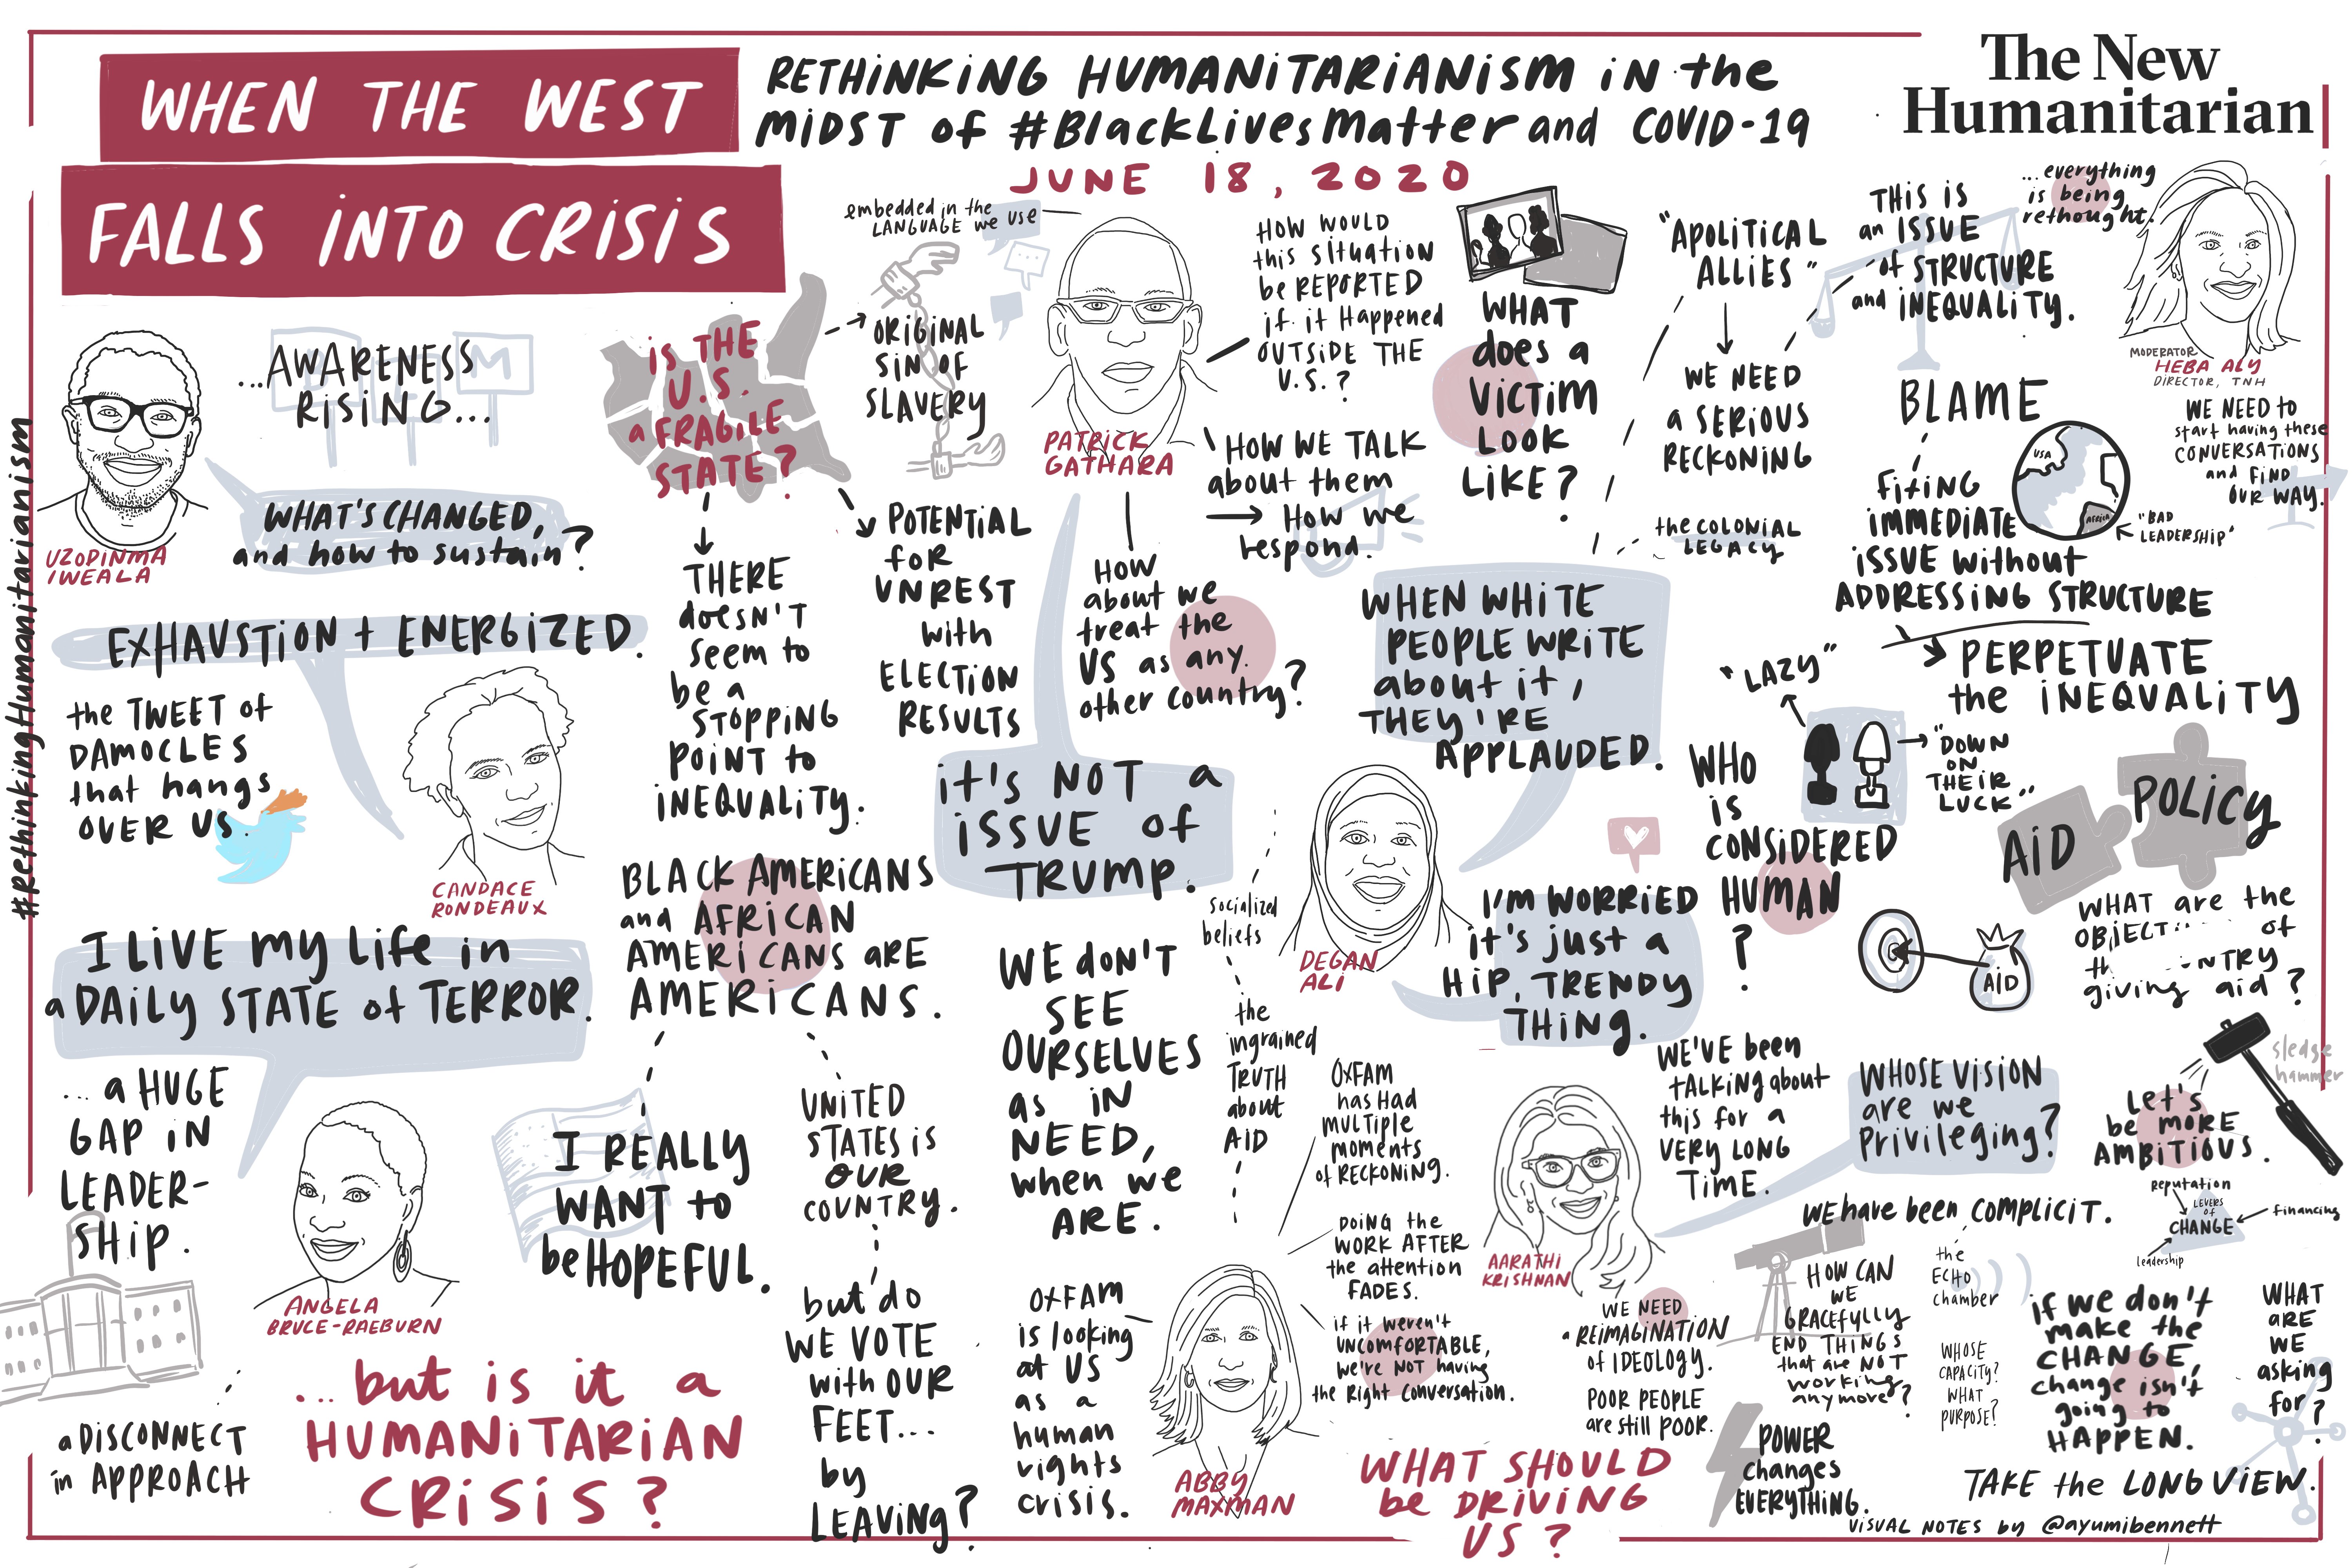 WHEN THE WEST
FALLS INTO CRISIS
RETHINKING HUMANITARIANISM IN the
MIDST of #BlackLivesMatter and COVID-19
JUNE 18, 2020
The New
Humanitarian
#RethinkingHumanitarianism
UZODINMA
IWEALA
...AWARENESS
RISING...
WHAT'S CHANGED,
and how to sustain?
EXHAUSTION + ENERGIZED.
the TWEET of
DAMOCLES
that hangs
OVER US.
CANDACE
RONDEAUX
I LIVE my life in
a DAILY STATE of TERROR.
... a HUGE
GAP IN
LEADER-
SHIP.
ANGELA
BRUCE-RAEBURN
a DISCONNECT
in APPROACH
...but is it a
HUMANITARIAN
CRISIS?
IS THE
U.S.
a FRAGILE
STATE?
ORIGINAL
SIN OF
SLAVERY
THERE
doesn't
seem to
be a
STOPPING
POINT to
INEQUALITY.
POTENTIAL
for
UNREST
with
ELECTION
RESULTS
BLACK AMERICANS
and AFRICAN
AMERICANS ARE
AMERICANS.
I REALLY
WANT to
be HOPEFUL.
UNITED
STATES is
OUR
COUNTRY.
but do
WE VOTE
with OUR
FEET...
by
LEAVING?
embedded in the
LANGUAGE we use
PATRICK
GATHARA
HOW WOULD
this situation
be REPORTED
if it Happened
OUTSIDE THE
U.S.?
HOW WE TALK
about them
How we
respond.
HOW
about we
treat the
US as any
other country?
it's NOT a
ISSUE of
TRUMP.
WE don't
SEE
OURSELVES
as IN
NEED,
when we
ARE.
WHAT
does a
VICTIM
LOOK
LIKE?
"APOLITICAL
ALLIES"
WE NEED
a SERIOUS
RECKONING
the COLONIAL
LEGACY
WHEN WHITE
PEOPLE WRITE
about it,
THEY'RE
APPLAUDED.
DEGAN
ALI
I'M WORRIED
it's just a
HIP, TRENDY
THING.
socialized
beliefs
the
ingrained
TRUTH
about
AID
OXFAM
is looking
at US
as a
human
rights
crisis.
ABBY
MAXMAN
OXFAM
has Had
MULTIPLE
moments
of RECKONING.
DOING the
WORK AFTER
the attention
FADES.
if it weren't
UNCOMFORTABLE,
we're NOT having
the Right Conversation.
WHAT SHOULD
be DRIVING
US?
THIS IS
an ISSUE
of STRUCTURE
and INEQUALITY.
...everything
is being
rethought.
MODERATOR
HEBA ALY
DIRECTOR, TNH
WE NEED to
start having these
CONVERSATIONS
and FIND
OUR WAY.
BLAME
fixing
IMMEDIATE
ISSUE without
ADDRESSING STRUCTURE
USA
AFRICA
"BAD
LEADERSHIP"
PERPETUATE
the INEQUALITY
"LAZY"
"DOWN
ON
THEIR
LUCK"
WHO
IS
CONSIDERED
HUMAN
?
AID
POLICY
AID
WHAT are the
of
giving aid?
WE'VE been
tALKING about
this for a
VERY LONG
TIME.
AARATHI
KRISHNAN
WHOSE VISION
are we
PRIVILEGING?
WE have been COMPLICIT.
the
ECHO
chamber
WHOSE
CAPACITY?
WHAT
PURPOSE?
HOW CAN
WE
GRACEFULLY
END THINGS
that are NOT
working
anymore?
WE NEED
a REIMAGINATION
of IDEOLOGY.
POOR PEOPLE
are still POOR.
POWER
changes
EVERYTHING.
sledge
hammer
LET'S
be MORE
AMBITIOUS.
Reputation
LEVERS
of
CHANGE
financing
leadership
if we don't
make the
CHANGE,
change isn't
going to
HAPPEN.
WHAT
ARE
WE
asking
for?
TAKE the LONG VIEW.
VISUAL NOTES by @ayumibennett